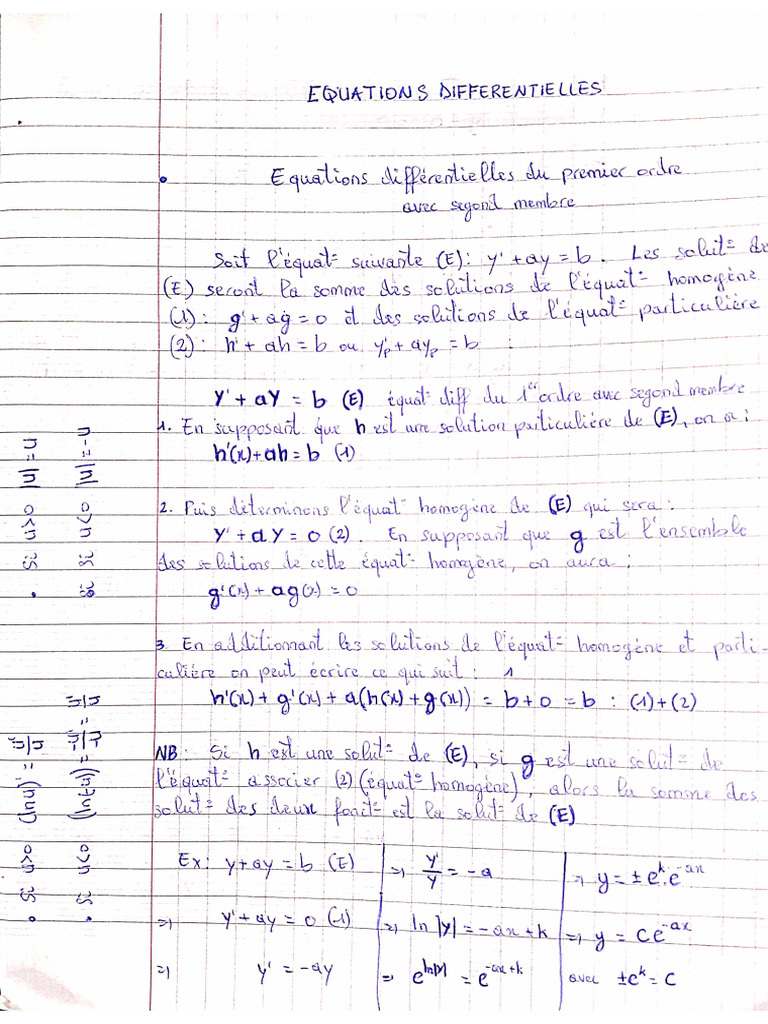 EQUATIONS DIFFERENTIELLES
• Equations différentielles du premier ordre
avec segond membre
Soit l'équat= suivante (E): y' + ay = b. Les solut= de
(E) seront la somme des solutions de l'équat= homogène
(1): g' + ag = 0 et des solutions de l'équat= particulière
(2): h' + ah = b ou y'p + ayp = b :
Y' + aY = b (E) équat= diff du 1er ordre avec segond membre
1. En supposant que h est une solution particulière de (E), on a :
h'(x) + ah = b (1)
2. Puis déterminons l'équat= homogène de (E) qui sera :
Y' + aY = 0 (2). En supposant que g est l'ensemble
des solutions de cette équat= homogène, on aura :
g'(x) + ag(x) = 0
3. En additionnant les solutions de l'équat= homogène et parti-
culière on peut écrire ce qui suit : 1
h'(x) + g'(x) + a(h(x) + g(x)) = b + 0 = b : (1)+(2)
NB: Si h est une solut= de (E), si g est une solut= de
l'équat= associer (2) (équat= homogène), alors la somme des
solut= des deux fonct= est la solut= de (E)
Ex: y + ay = b (E)
=> y' + ay = 0 (1)
=> y' = -ay
=> y'/y = -a
=> ln |y| = -ax + k
=> e^ln|y| = e^-ax+k
=> y = ± e^k . e^-ax
=> y = Ce^-ax
avec ±e^k = C
• si u>0 (ln u)' = u'/u
• si u<0 (ln(-u))' = -u'/-u = u'/u
• si u>0 |u| = u
si u<0 |u| = -u